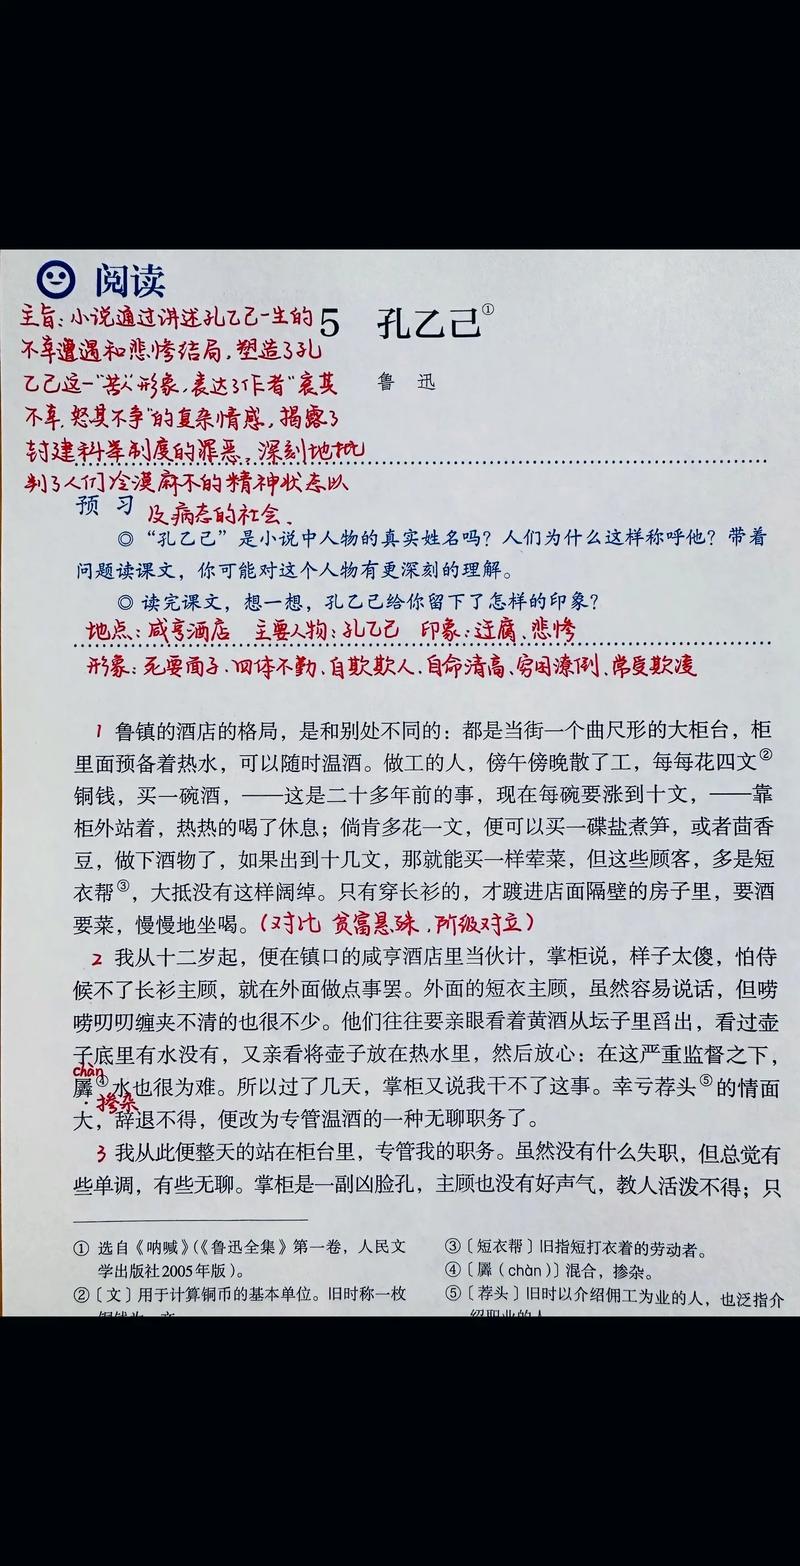 阅读
主旨：小说通过讲述孔乙己一生的
5 孔乙己①
不幸遭遇和悲惨结局，塑造了孔
乙己这一"苦人"形象，表达了作者"哀其
鲁 迅
不幸，怒其不争"的复杂情感，揭露了
封建科举制度的罪恶，深刻地批
判了人们冷漠麻木的精神状态以
预 习
及病态的社会。
◎“孔乙己”是小说中人物的真实姓名吗？人们为什么这样称呼他？带着
问题读课文，你可能对这个人物有更深刻的理解。
◎ 读完课文，想一想，孔乙己给你留下了怎样的印象？
地点：咸亨酒店 主要人物：孔乙己 印象：迂腐、悲惨
形象：死要面子、四体不勤、自欺欺人、自命清高、穷困潦倒、常受欺凌
1 鲁镇的酒店的格局，是和别处不同的：都是当街一个曲尺形的大柜台，柜
里面预备着热水，可以随时温酒。做工的人，傍午傍晚散了工，每每花四文②
铜钱，买一碗酒，——这是二十多年前的事，现在每碗要涨到十文，——靠
柜外站着，热热的喝了休息；倘肯多花一文，便可以买一碟盐煮笋，或者茴香
豆，做下酒物了，如果出到十几文，那就能买一样荤菜，但这些顾客，多是短
衣帮③，大抵没有这样阔绰。只有穿长衫的，才踱进店面隔壁的房子里，要酒
要菜，慢慢地坐喝。（对比 贫富悬殊，阶级对立）
2 我从十二岁起，便在镇口的咸亨酒店里当伙计，掌柜说，样子太傻，怕侍
候不了长衫主顾，就在外面做点事罢。外面的短衣主顾，虽然容易说话，但唠
唠叨叨缠夹不清的也很不少。他们往往要亲眼看着黄酒从坛子里舀出，看过壶
子底里有水没有，又亲看将壶子放在热水里，然后放心：在这严重监督之下，
chàn
羼④水也很为难。所以过了几天，掌柜又说我干不了这事。幸亏荐头⑤的情面
掺杂
大，辞退不得，便改为专管温酒的一种无聊职务了。
3 我从此便整天的站在柜台里，专管我的职务。虽然没有什么失职，但总觉有
些单调，有些无聊。掌柜是一副凶脸孔，主顾也没有好声气，教人活泼不得；只
① 选自《呐喊》（《鲁迅全集》第一卷，人民文
学出版社2005年版）。
②〔文〕用于计算铜币的基本单位。旧时称一枚
③〔短衣帮〕旧指短打衣着的劳动者。
④〔羼（chàn）〕混合，掺杂。
⑤〔荐头〕旧时以介绍佣工为业的人，也泛指介